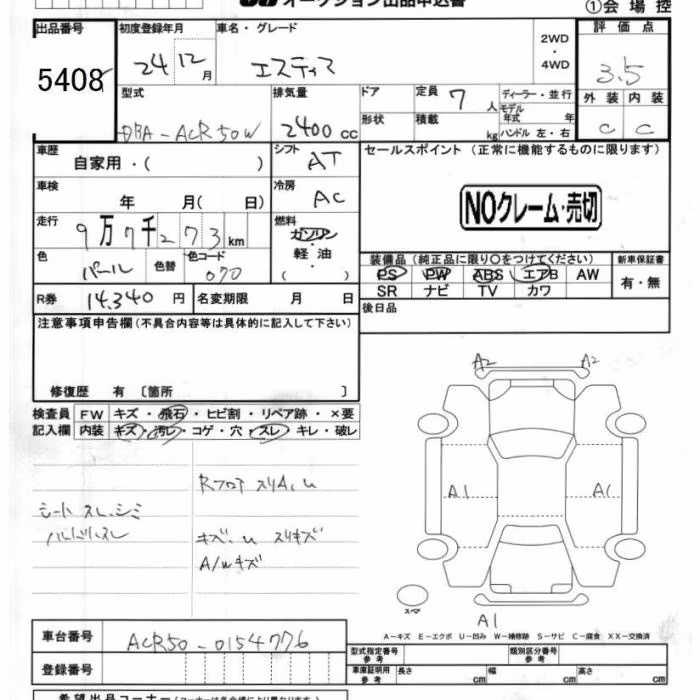 オークション出品申込書
①会場控
出品番号 初度登録年月 車名・グレード 2WD・4WD 評価点
5408 24 12月 エスティマ 3.5
型式 排気量 ドア 定員 7人 ディーラー・並行 外装 内装
モデル年式 年
DBA-ACR50W 2400cc 形状 積載 kg ハンドル 左・右 C C
車歴 自家用・( ) シフト AT セールスポイント(正常に機能するものに限ります)
車検 年 月( 日) 冷房 AC NOクレーム・売切
走行 9万7千273km 燃料 ガソリン・軽油・( )
装備品(純正品に限り○をつけてください) 新車保証書
色 パール 色替 色コード 070 PS PW ABS エアB AW 有・無
SR ナビ TV カワ
R券 14,340円 名変期限 月 日 後日品
注意事項申告欄(不具合内容等は具体的に記入して下さい)
修復歴 有 〔箇所 〕
検査員記入欄 FW キズ・飛石・ヒビ割・リペア跡・×要
内装 キズ・汚レ・コゲ・穴・スレ・キレ・破レ
A2 A2
Rフロア スリA,U
A1 A1
シート スレ,シミ
ハンドルスレ
キズ.U スリキズ
A/Wキズ
スペア
A1
A-キズ E-エクボ U-凹み W-補修跡 S-サビ C-腐食 XX-交換済
車台番号 ACR50-0154776
型式指定番号 参考 類別区分番号 参考
登録番号 車庫証明用 参考 長さ cm 幅 cm 高さ cm
希望出品コーナー